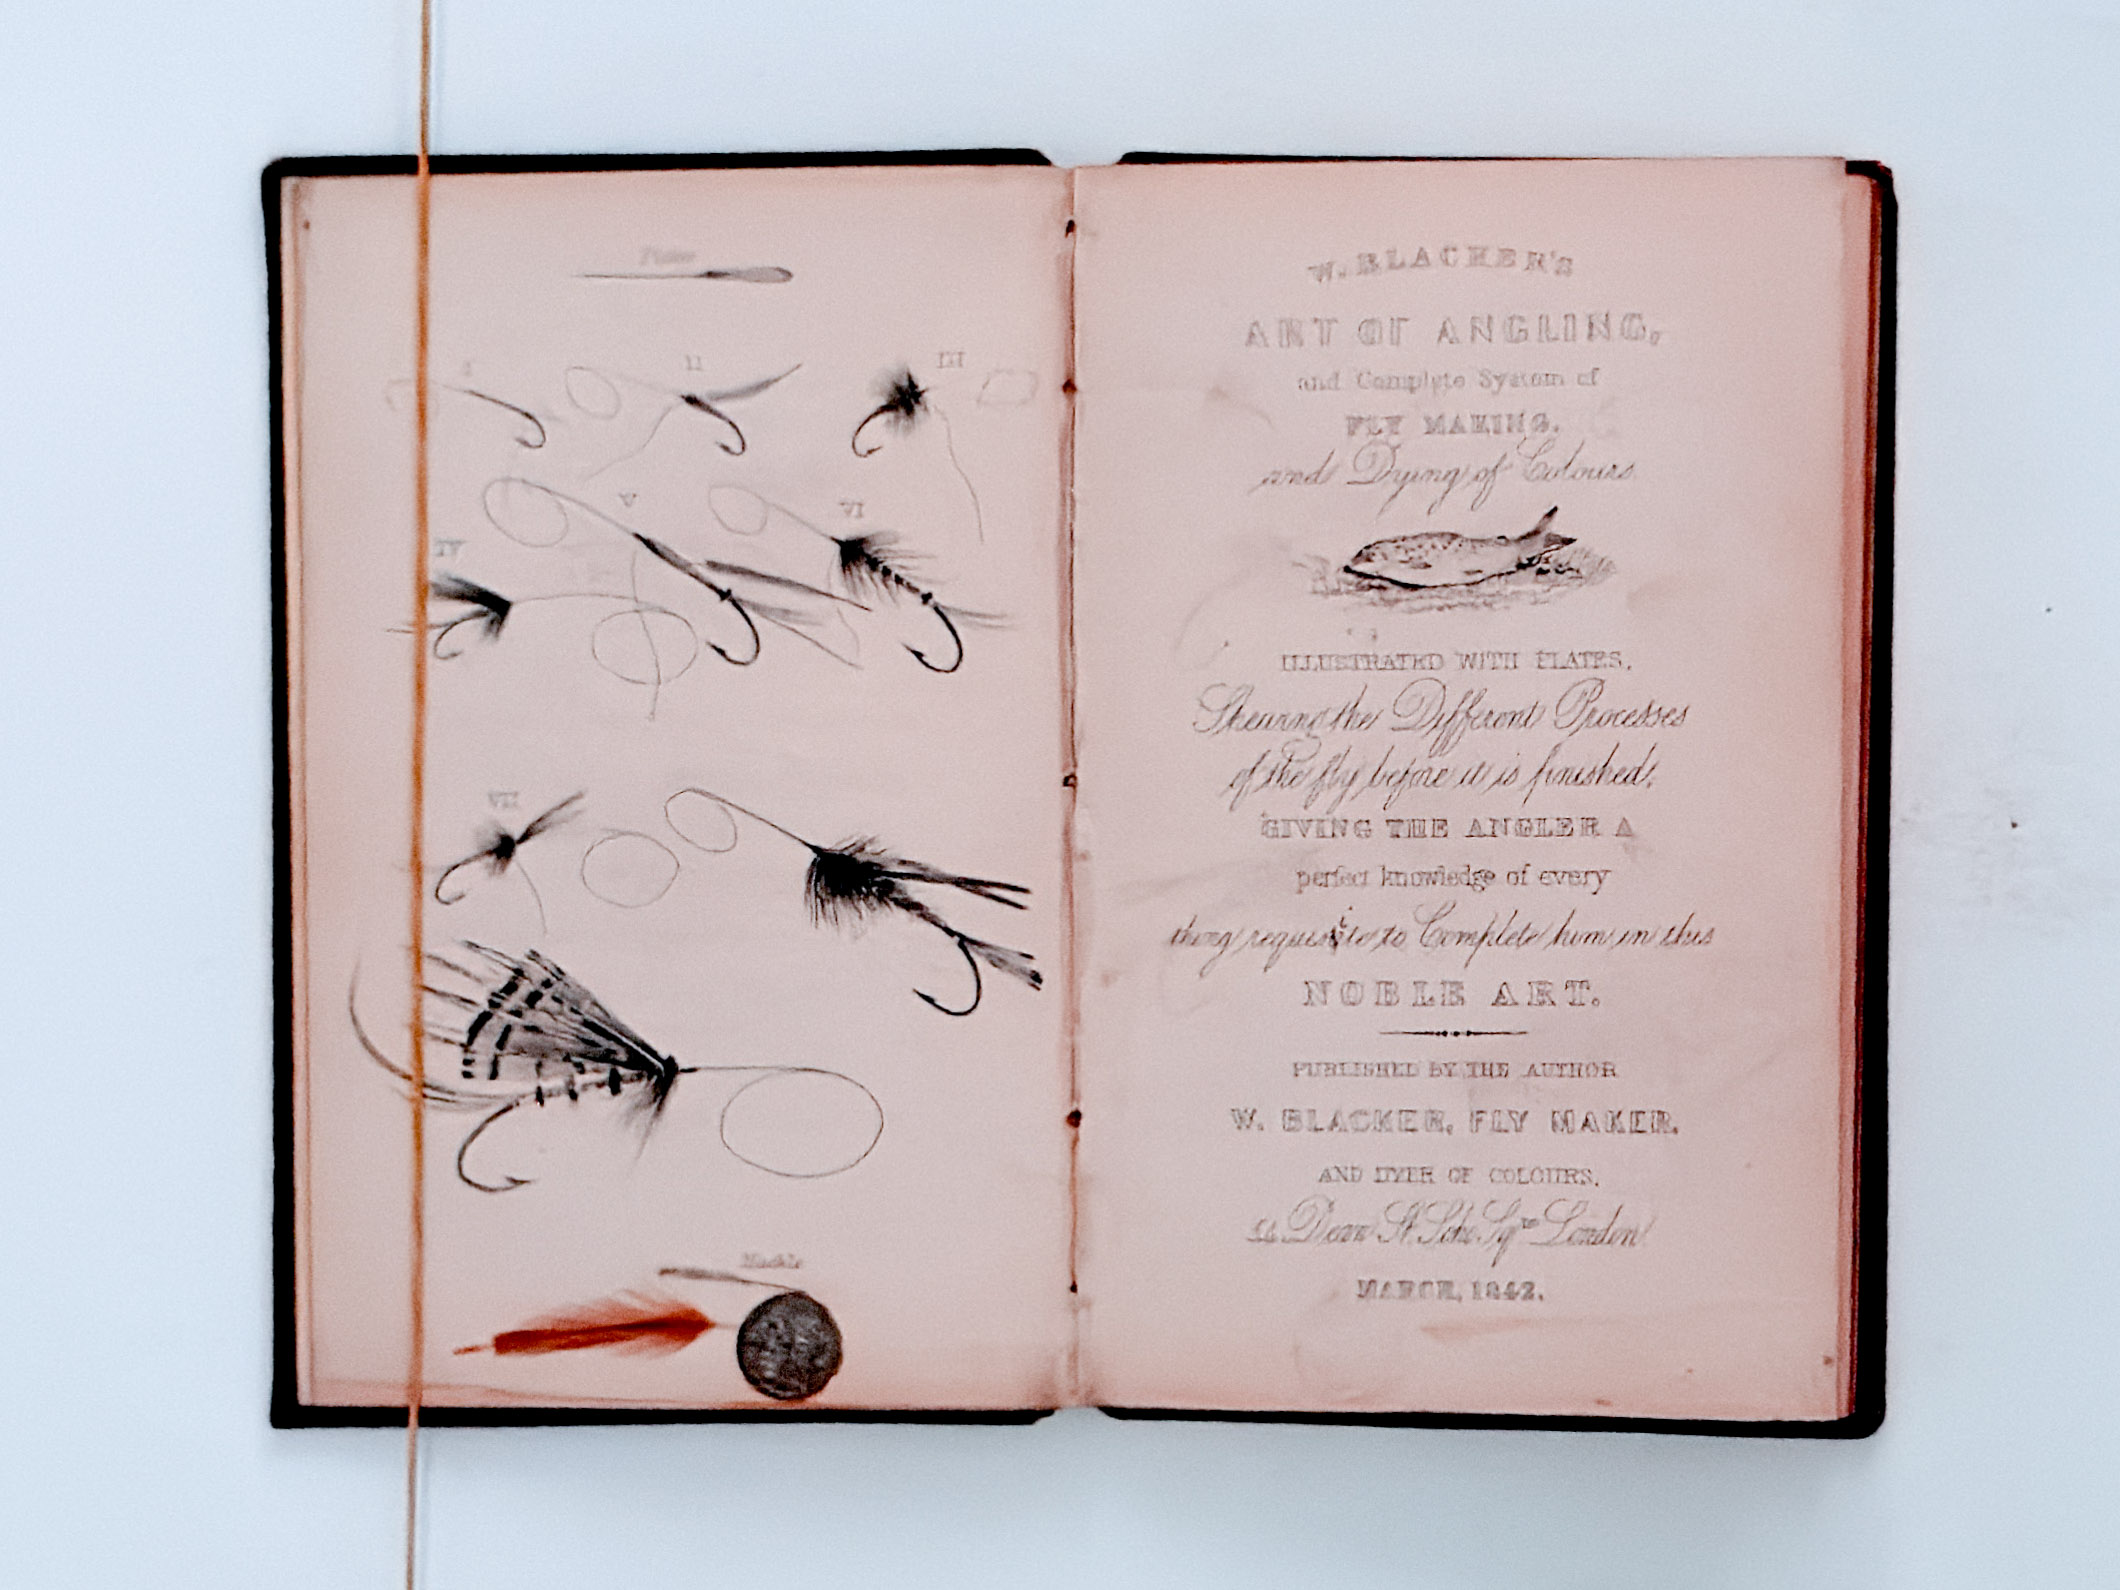 I
II
III
IV
V
VI
VII
Hackle
W. BLACKER'S
ART OF ANGLING,
and Complete System of
FLY MAKING,
and Dying of Colours
ILLUSTRATED WITH PLATES,
Shewing the Different Processes
of the fly before it is finished,
GIVING THE ANGLER A
perfect knowledge of every
thing requisite to Complete him in this
NOBLE ART.
PUBLISHED BY THE AUTHOR
W. BLACKER, FLY MAKER,
AND DYER OF COLOURS,
54 Dean St. Soho Sqre London
MARCH, 1842.